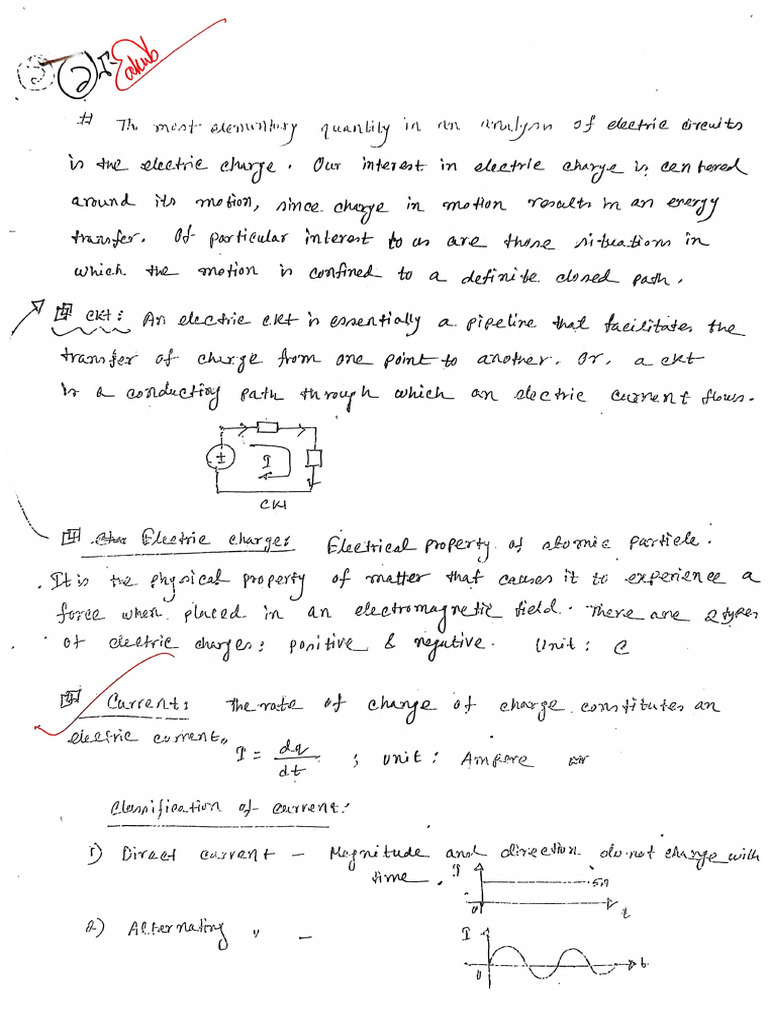 # The most elementary quantity in an analysis of electric circuits
is the electric charge. Our interest in electric charge is centered
around its motion, since charge in motion results in an energy
transfer. Of particular interest to us are those situations in
which the motion is confined to a definite closed path.
ckt: An electric ckt is essentially a pipeline that facilitates the
transfer of charge from one point to another. Or, a ckt
is a conducting path through which an electric current flows.
±
I
CKt
Electric charge: Electrical property of atomic particle.
It is the physical property of matter that causes it to experience a
force when placed in an electromagnetic field. There are 2 types
of electric charges: positive & negative. Unit: C
Current: The rate of change of charge constitutes an
electric current.
I = dq/dt ; unit: Ampere
Classification of current:
1) Direct current – Magnitude and direction do not change with
time.
I
0
t
2) Alternating " –
I
0
t